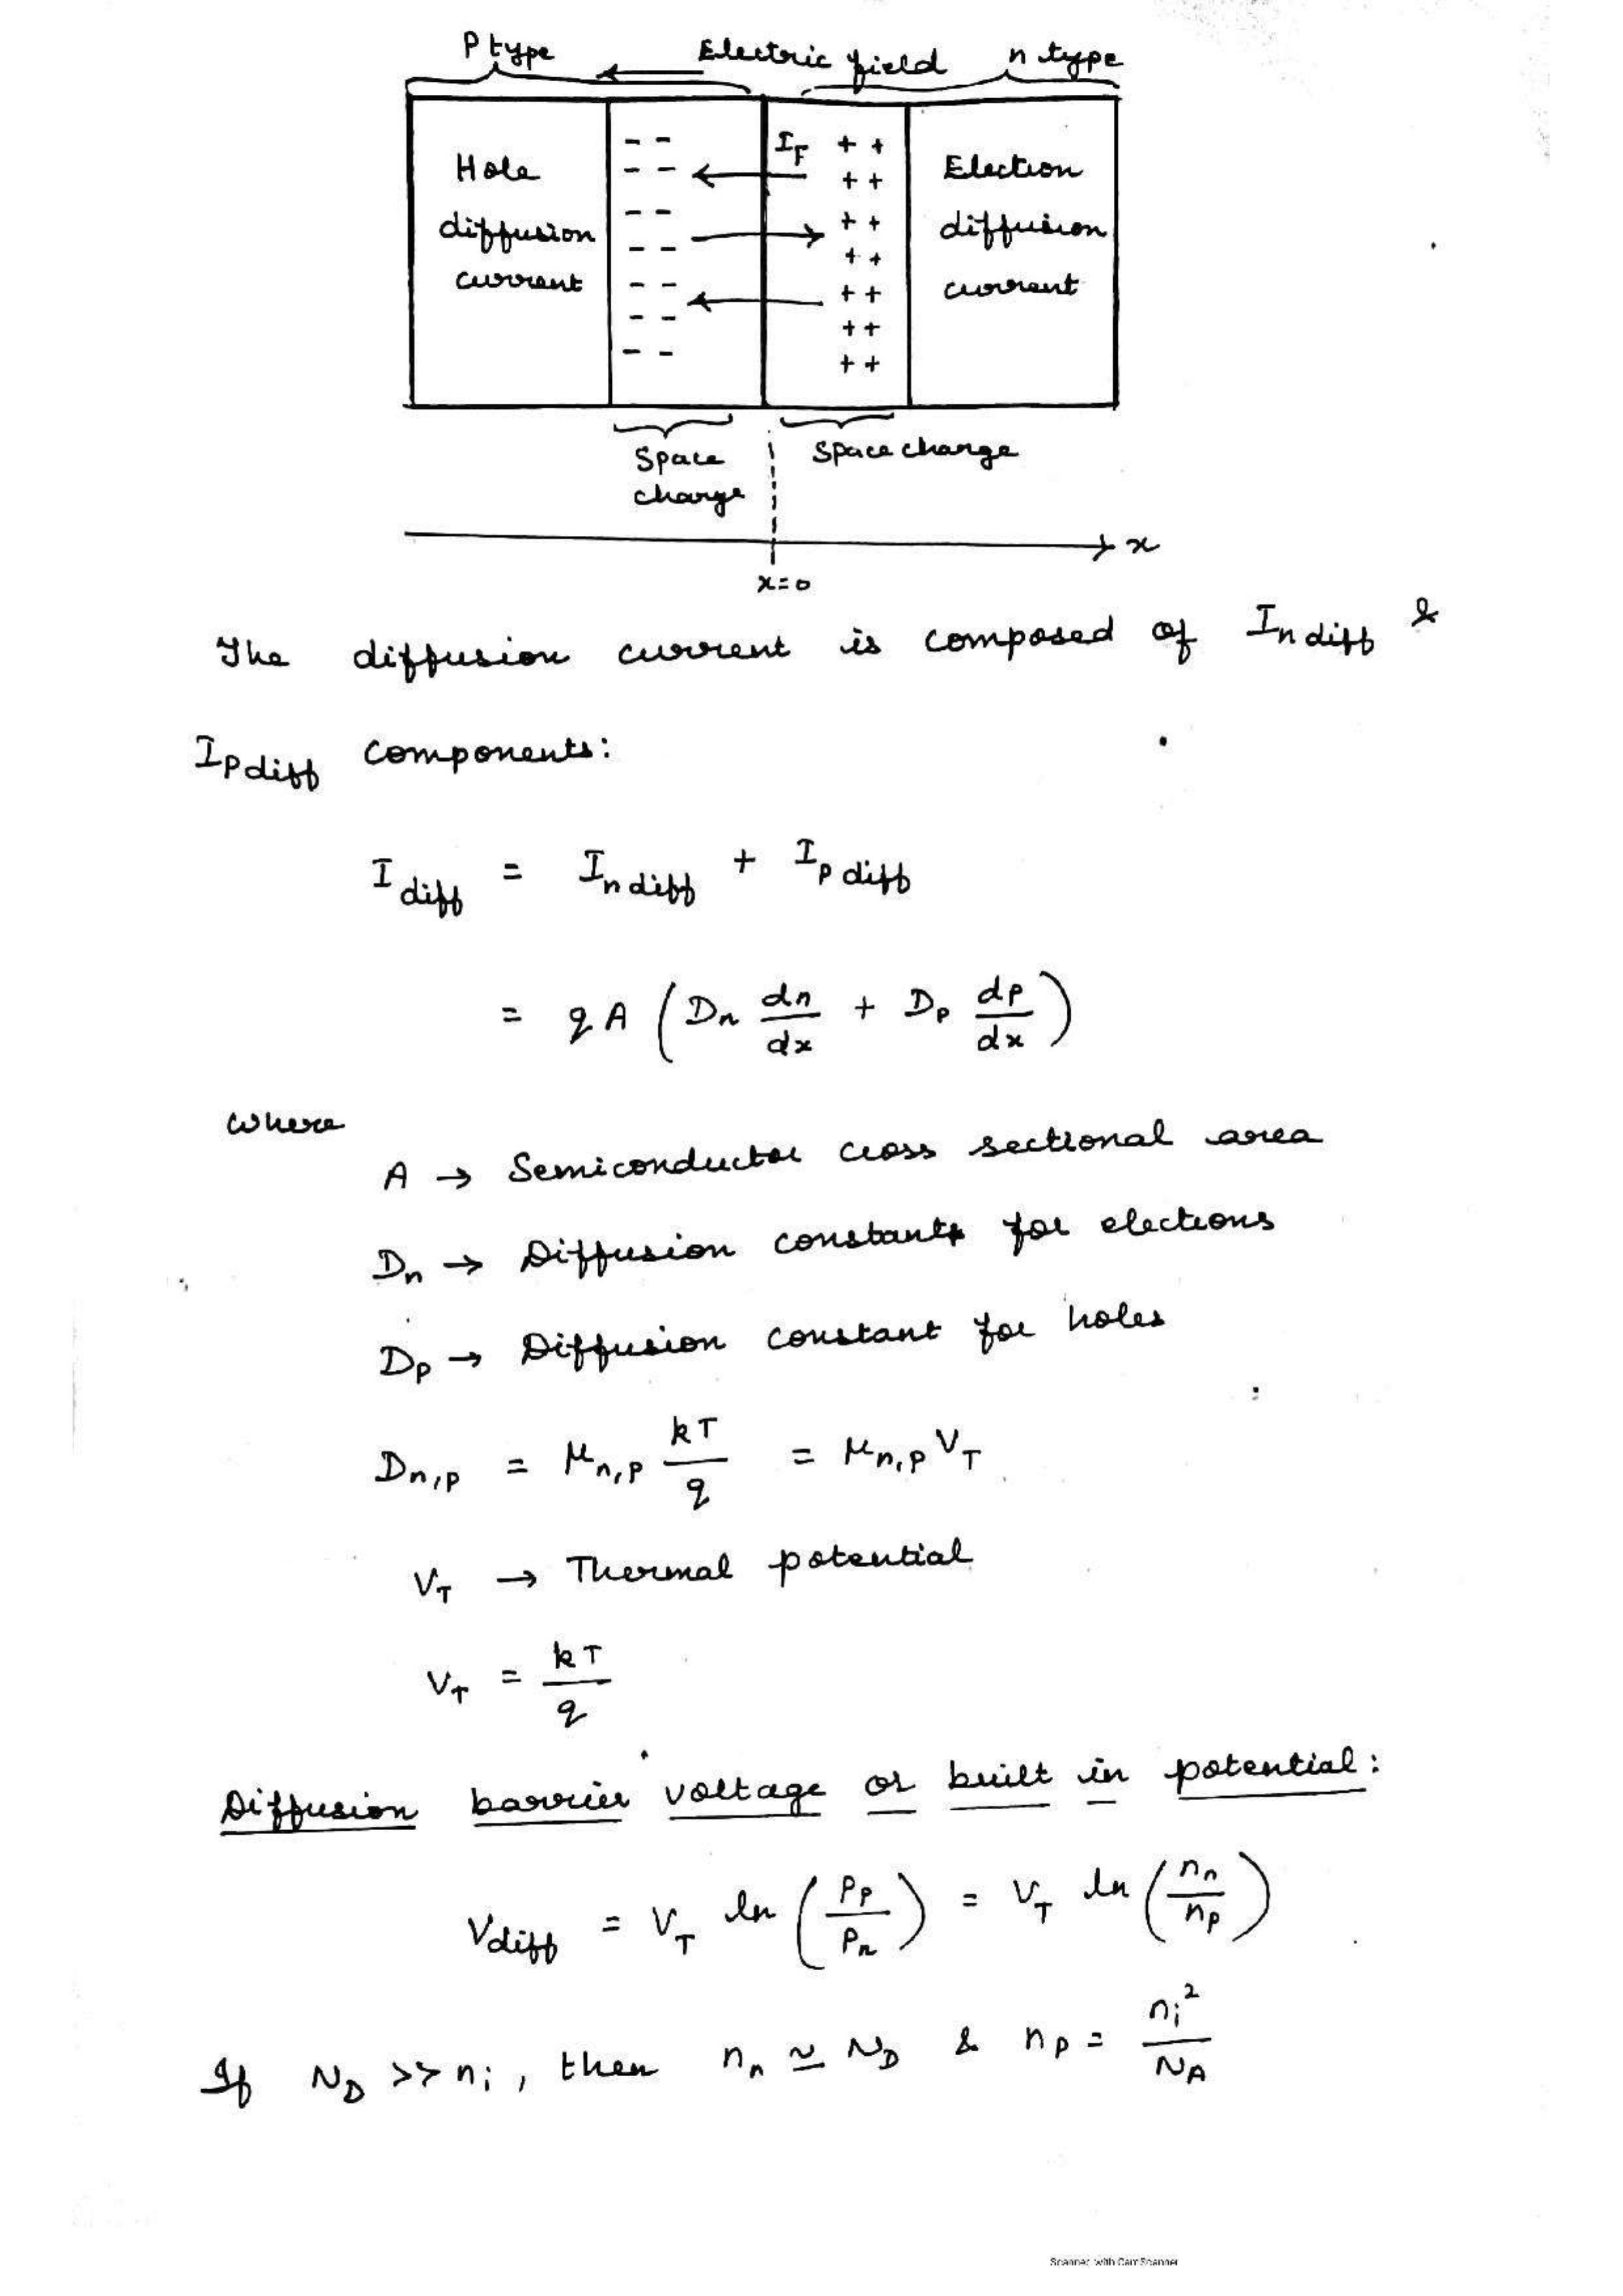 P type Electric field n type
Hole diffusion current
- -
- -
- -
- -
- -
- -
- -
I_F
+ +
+ +
+ +
+ +
+ +
+ +
+ +
Election diffusion current
Space charge
Space charge
x
x=0
The diffusion current is composed of I_n diff &
I_p diff components:
I_diff = I_n diff + I_p diff
= qA (D_n dn/dx + D_p dp/dx)
where
A → Semiconductor cross sectional area
D_n → Diffusion constants for elections
D_p → Diffusion constant for holes
D_n,p = μ_n,p kT/q = μ_n,p V_T
V_T → Thermal potential
V_T = kT/q
Diffusion barrier voltage or built in potential:
V_diff = V_T ln (P_p/P_n) = V_T ln (n_n/n_p)
If N_D >> n_i, then n_n ≃ N_D & n_p = n_i²/N_A
Scanned with CamScanner